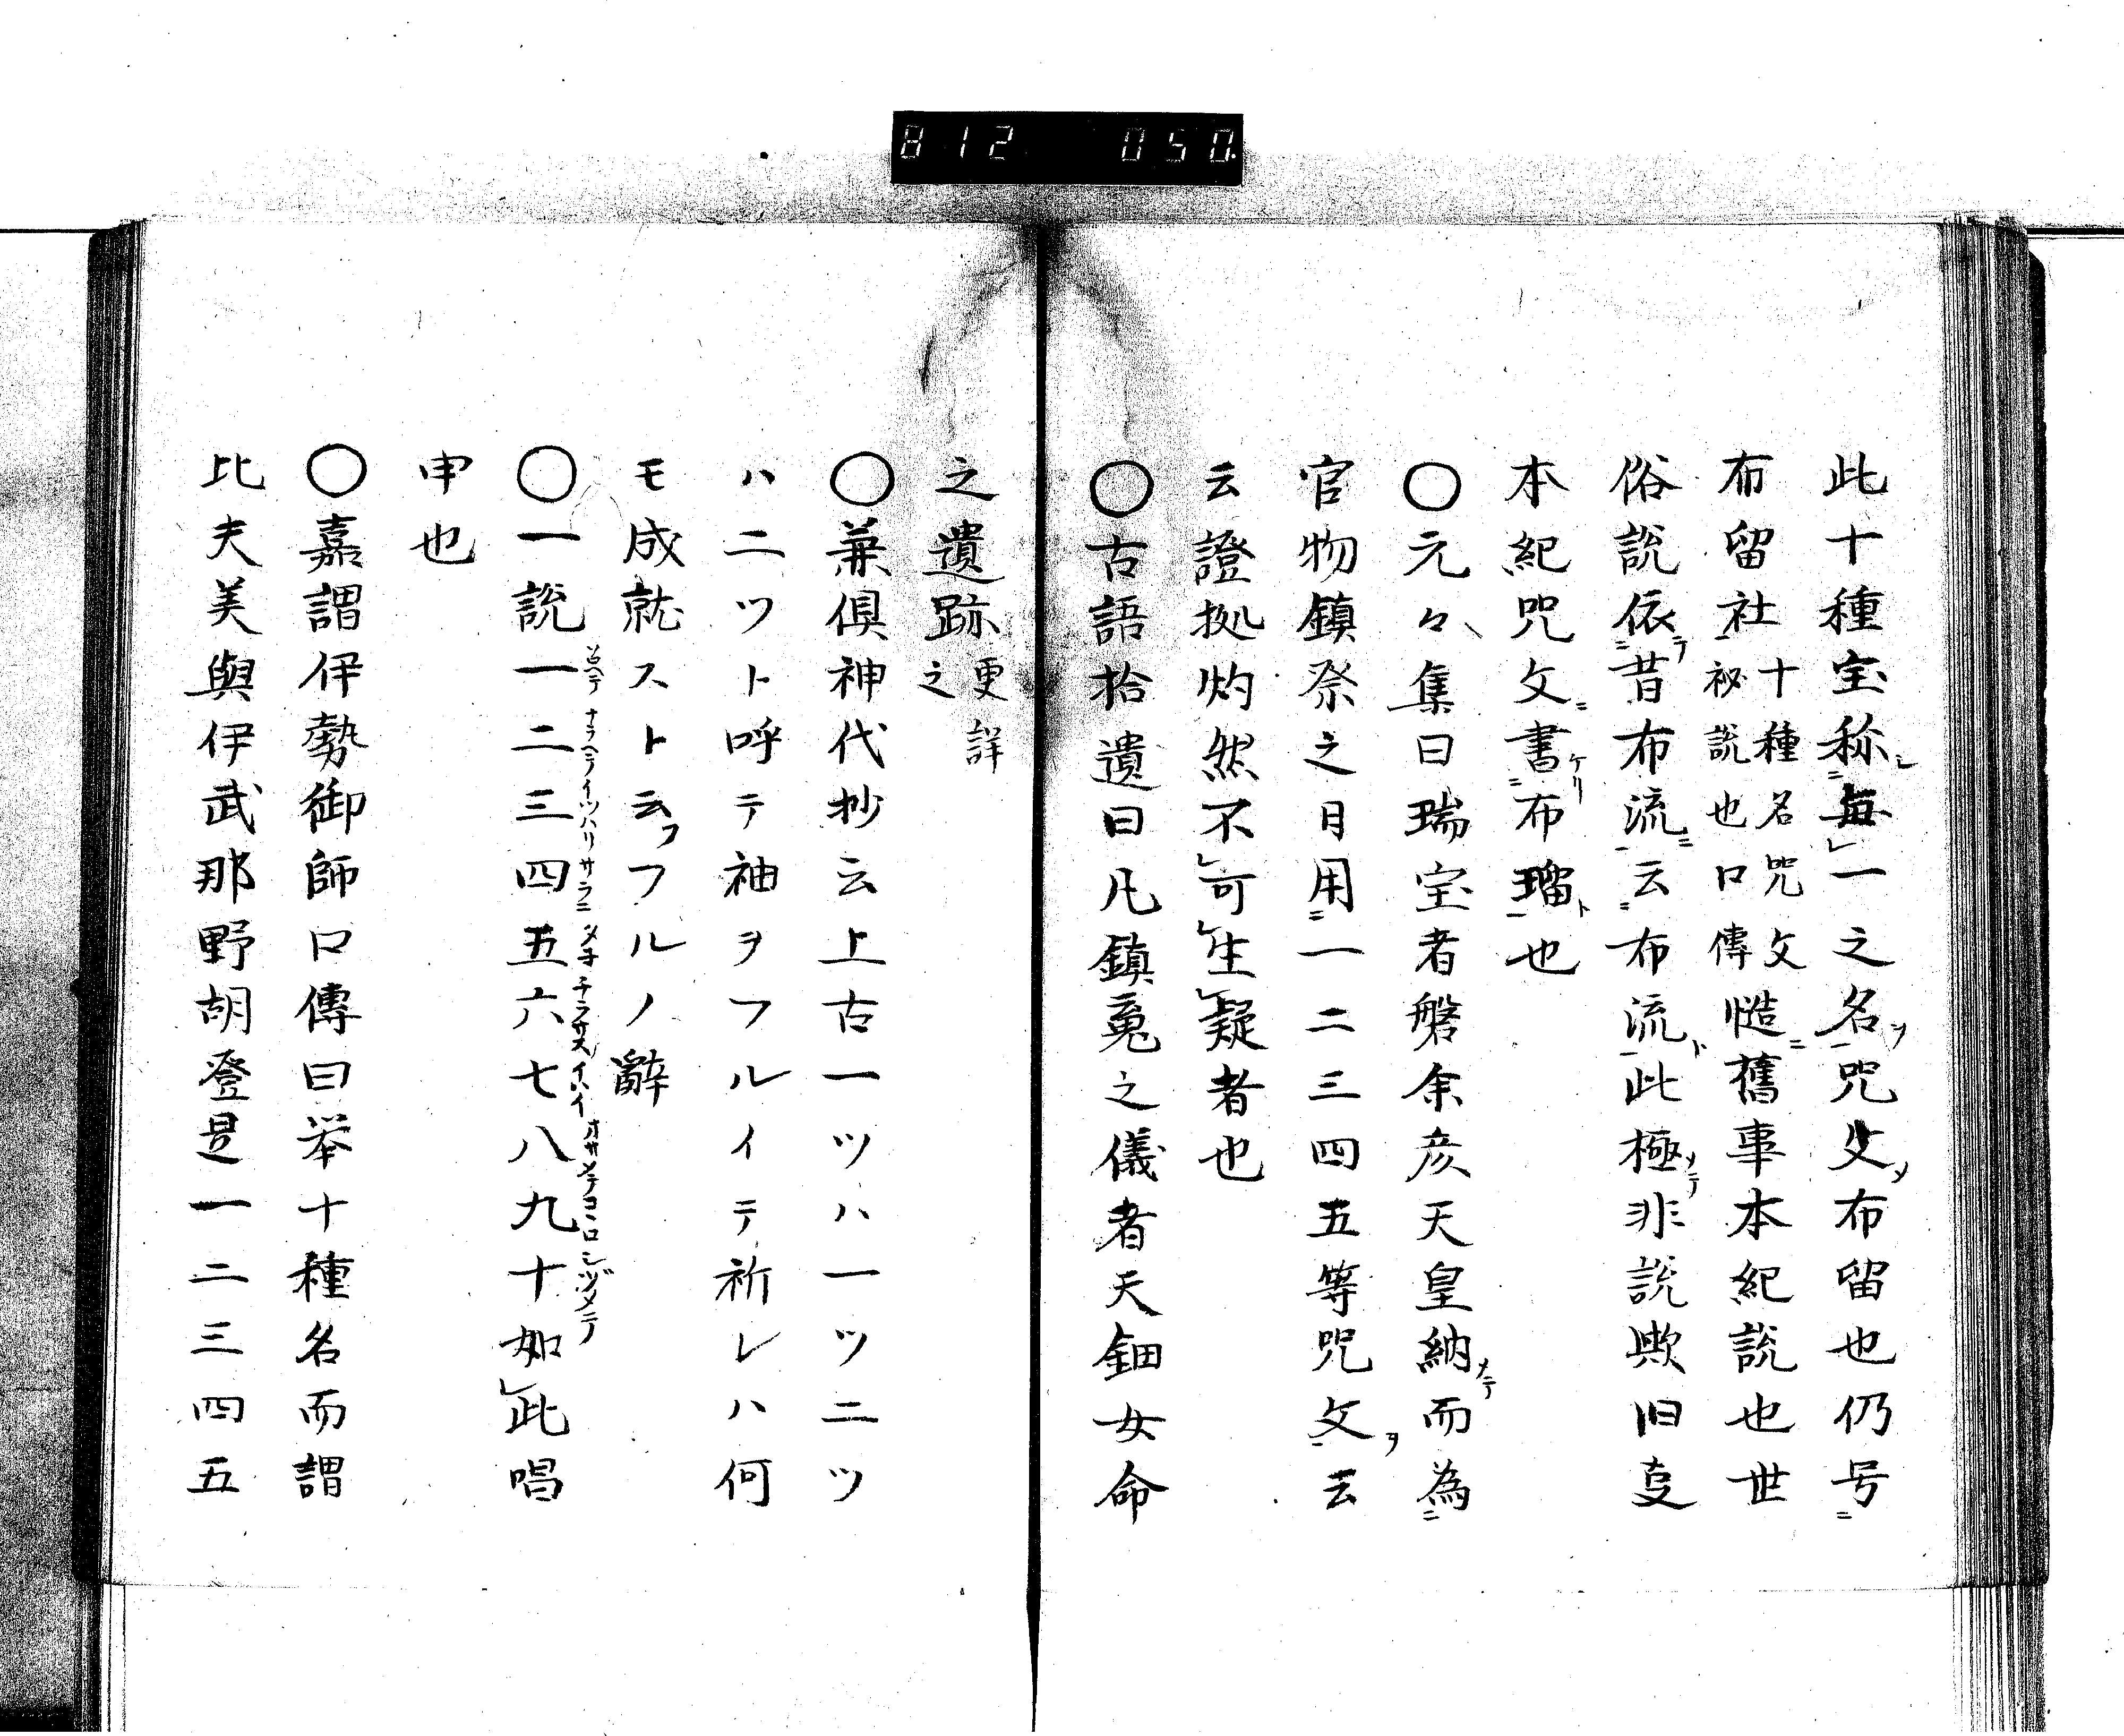 812 050.
此十種宝称毎一之名咒文布留也仍号
布留社十種名咒文秘説也口傳慥舊事本紀説也世
俗説依昔布流云布流此極非説歟旧事
本紀咒文書布瑠也
〇元々集曰瑞宝者磐余彦天皇納而為
官物鎮祭之月用一二三四五等咒文云
云證拠灼然不可生疑者也
〇古語拾遺曰凡鎮䰟之儀者天鈿女命
之遺跡更詳之
〇兼倶神代抄云上古一ツハ一ツニツ
ハ二ツト呼テ袖ヲフルイテ祈レハ何
モ成就スト云フフルノ辭
〇一説一二三四五六七八九十如此唱
申也
〇嘉謂伊勢御師口傳曰举十種名而謂
比夫美與伊武那野胡登是一二三四五